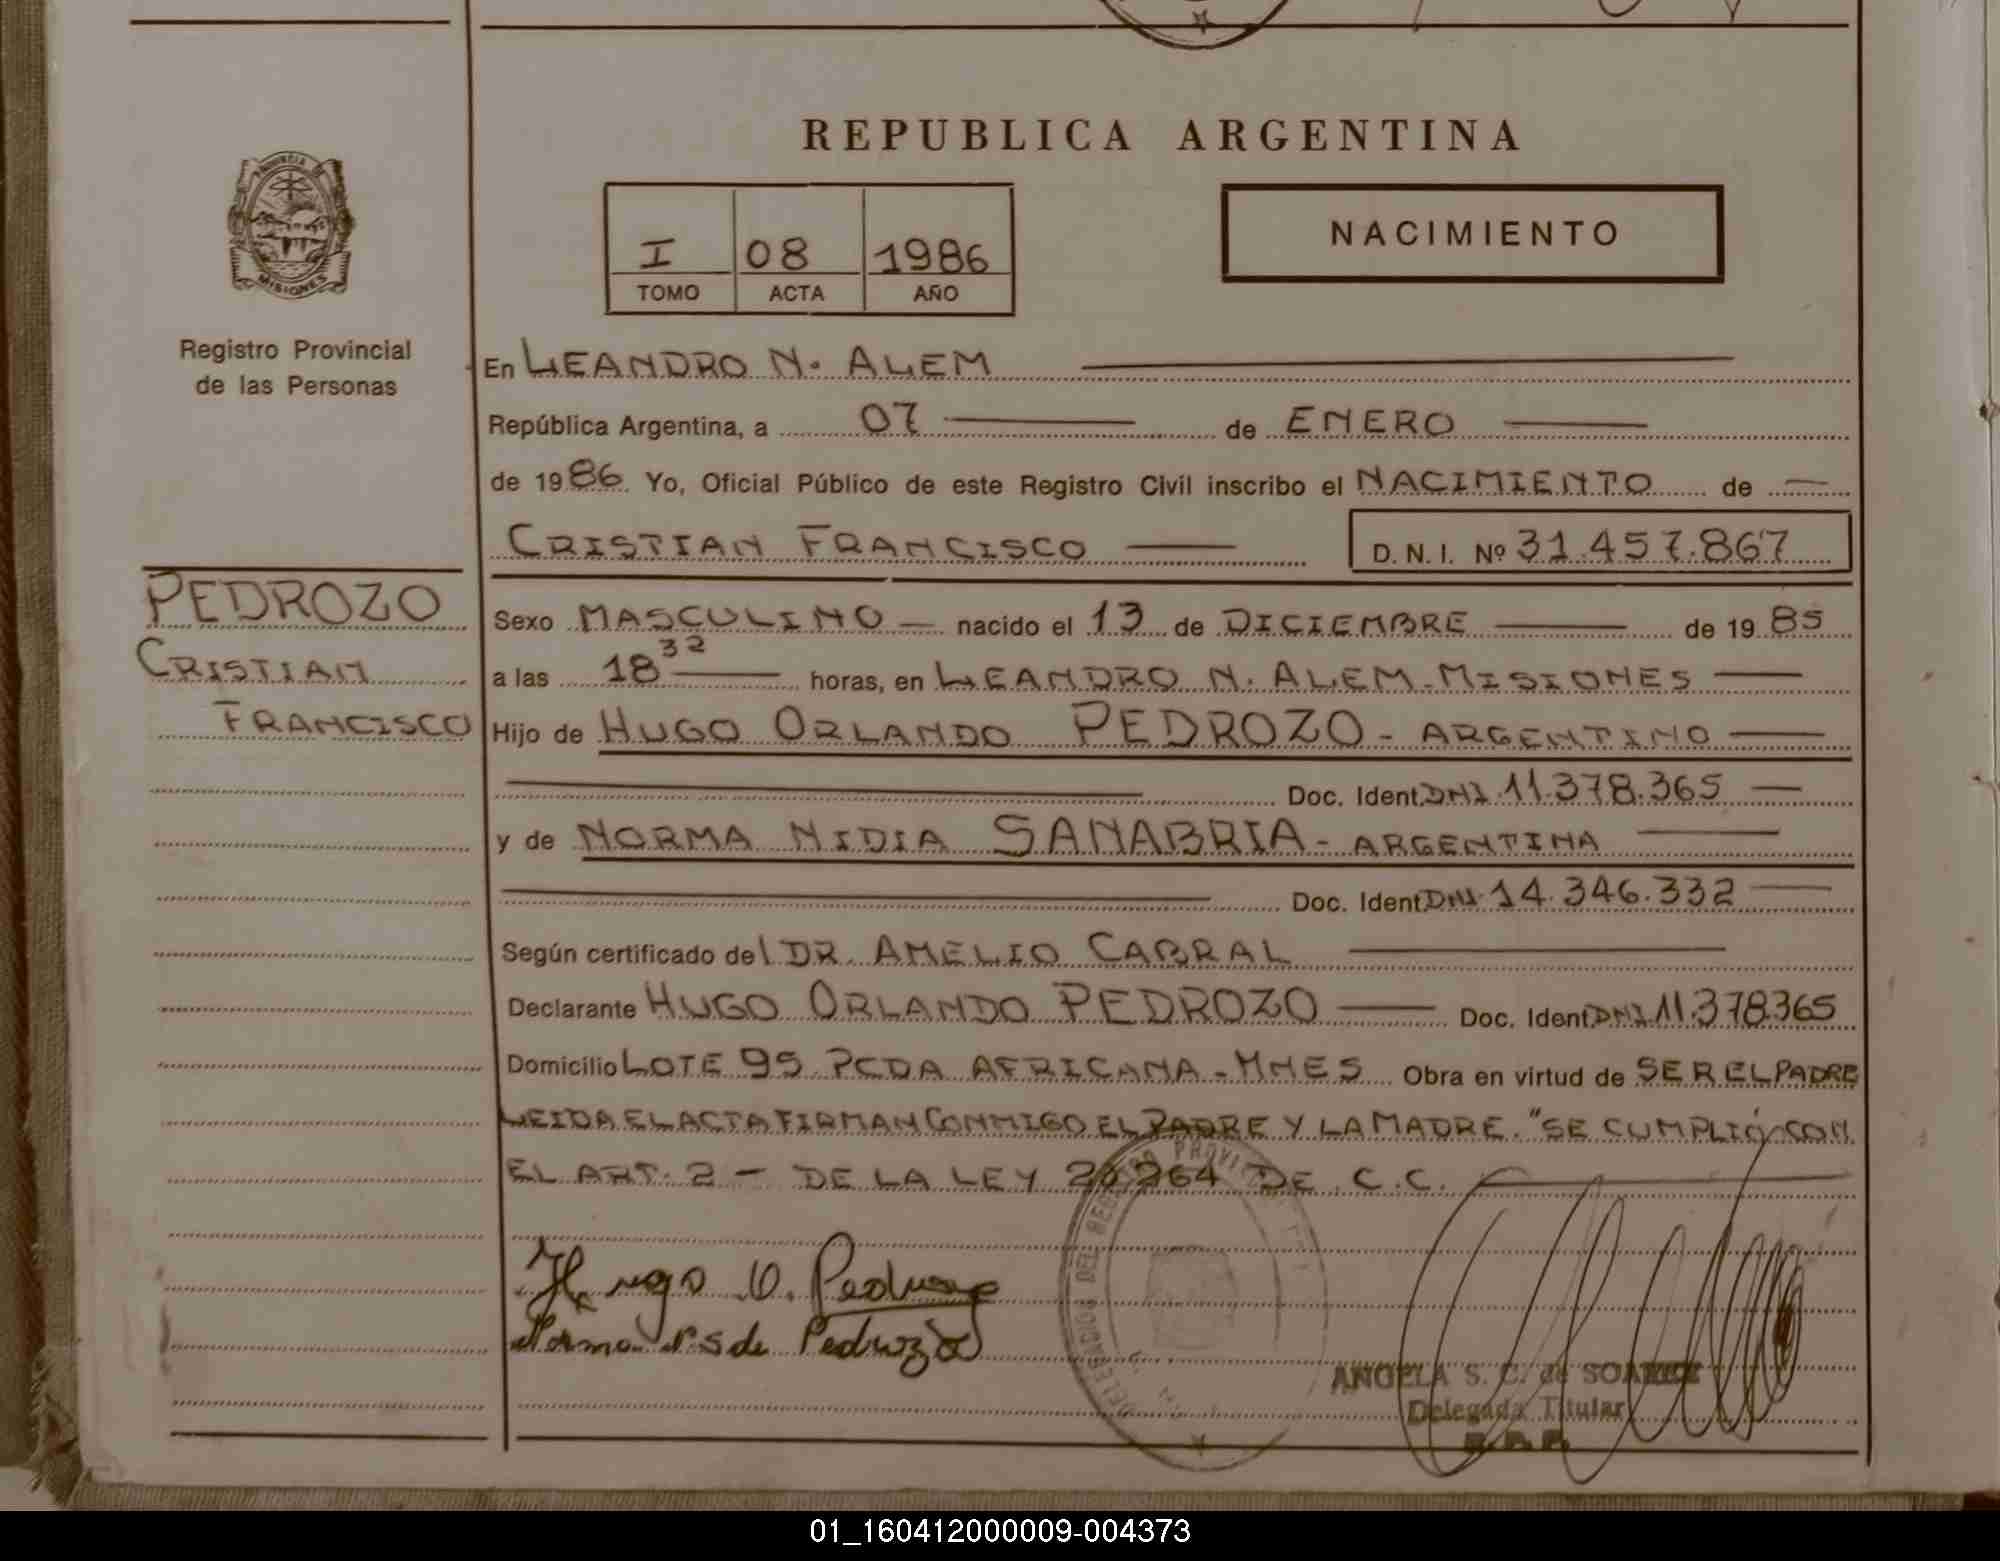 REPUBLICA ARGENTINA
PROVINCIA DE
MISIONES
Registro Provincial
de las Personas
I 08 1986
TOMO ACTA AÑO
NACIMIENTO
En LEANDRO N. ALEM
República Argentina, a 07 de ENERO
de 1986. Yo, Oficial Público de este Registro Civil inscribo el NACIMIENTO de
CRISTIAN FRANCISCO D.N.I. Nº 31.457.867
PEDROZO
CRISTIAN
FRANCISCO
Sexo MASCULINO nacido el 13 de DICIEMBRE de 1985
a las 18 32 horas, en LEANDRO N. ALEM - MISIONES
Hijo de HUGO ORLANDO PEDROZO - ARGENTINO
Doc. Ident. DNI 11.378.365
y de NORMA NIDIA SANABRIA - ARGENTINA
Doc. Ident. DNI 14.346.332
Según certificado del DR. AMELIO CABRAL
Declarante HUGO ORLANDO PEDROZO Doc. Ident. DNI 11.378365
Domicilio LOTE 95 PCDA AFRICANA - MNES Obra en virtud de SER EL PADRE
LEIDA EL ACTA FIRMAN CONMIGO EL PADRE Y LA MADRE. "SE CUMPLIÓ CON
EL ART. 2 - DE LA LEY 20,264 DE C.C.
Hugo O. Pedrozo
Norma N. S de Pedrozo
DELEGACION DEL REGISTRO PROVINCIAL
ANGELA S. C. de
Delegada Titular
R.P.P.
01_160412000009-004373